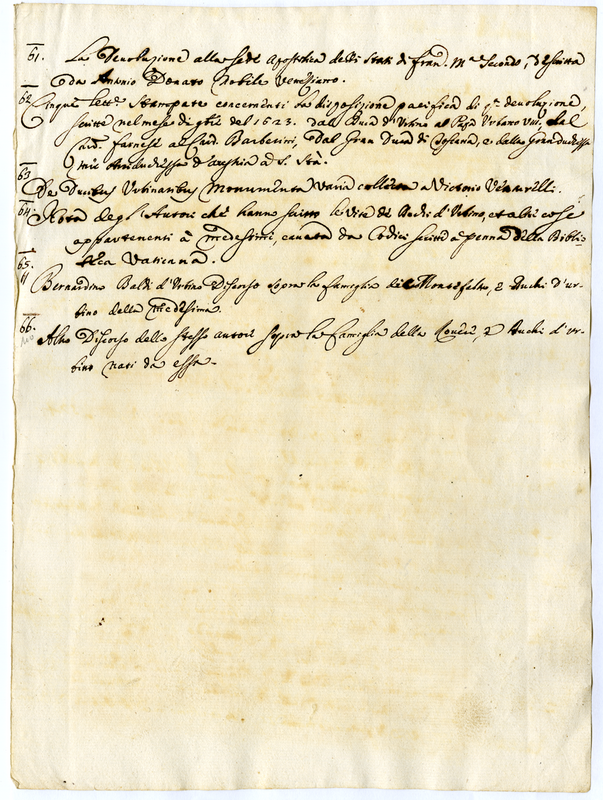 61. La Devoluzione alla Sede Apostolica delli Stati di Fran. Ma Secondo, descritta
da Antonio Donato Nobile Veneziano.
62 Cinque lettre stampate concernenti la disposizione pacifica di sta devoluzione,
scritte nel mese di del 1623. dall Duca d'Urbino al Papa Urbano VIII, dal
Card. Farnese al Card. Barberini, dal Gran Duca di Toscana, e dalla Gran duchessa
Arciduchessa d'Austria a S. Sta.
63 De Ducibus Urbinatibus Monumenta varia collecta a Victorio Venturelli.
64. Nota degl'Autori che hanno scritto le vite de Duchi d'Urbino, et altre cose
appartenenti à medesimi, cavata da Codici scritti a penna della Biblio-
teca Vaticana.
65. Bernardino Baldi d'Urbino Discorso sopra la famiglia di Montefeltro, e Duchi d'ur-
bino della medesima.
66. Altro Discorso dello stesso autore sopra la famiglia della Rovere, e Duchi d'ur-
bino nati da essa.